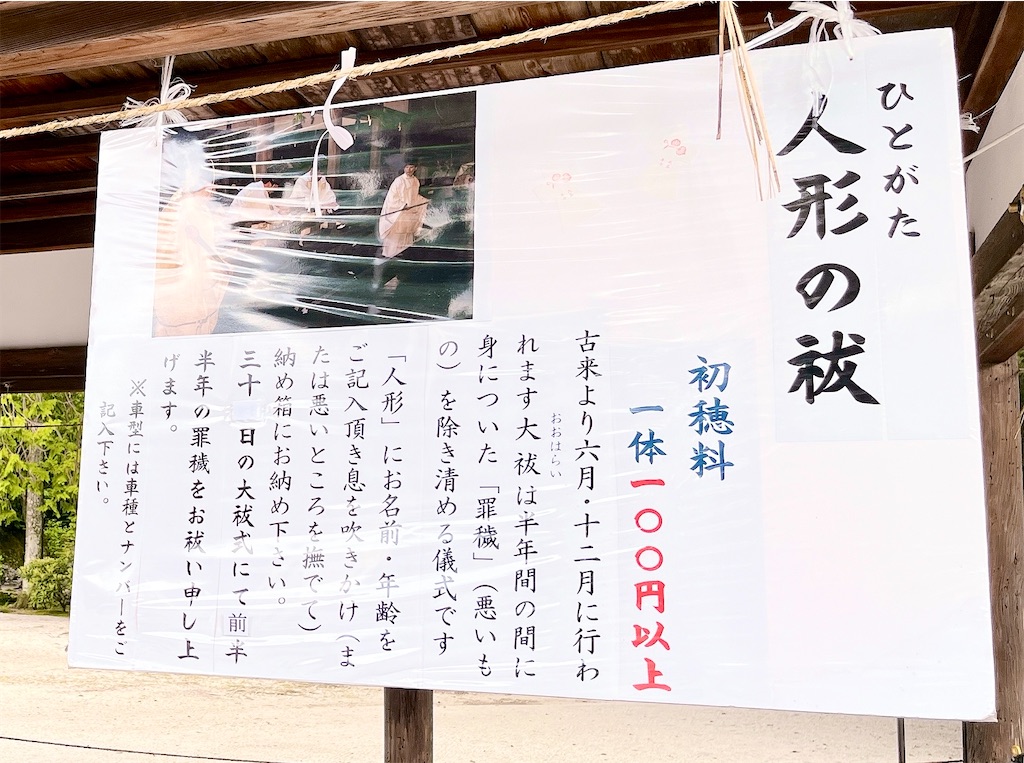 ひとがた
人形の祓
初穂料
一体一〇〇円以上
古来より六月・十二月に行わ
れます大祓は半年間の間に
おおはらい
身についた「罪穢」（悪いも
の）を除き清める儀式です
「人形」にお名前・年齢を
ご記入頂き息を吹きかけ（ま
たは悪いところを撫でて）
納め箱にお納め下さい。
三十日の大祓式にて前半
半年の罪穢をお祓い申し上
げます。
※車型には車種とナンバーをご
記入下さい。